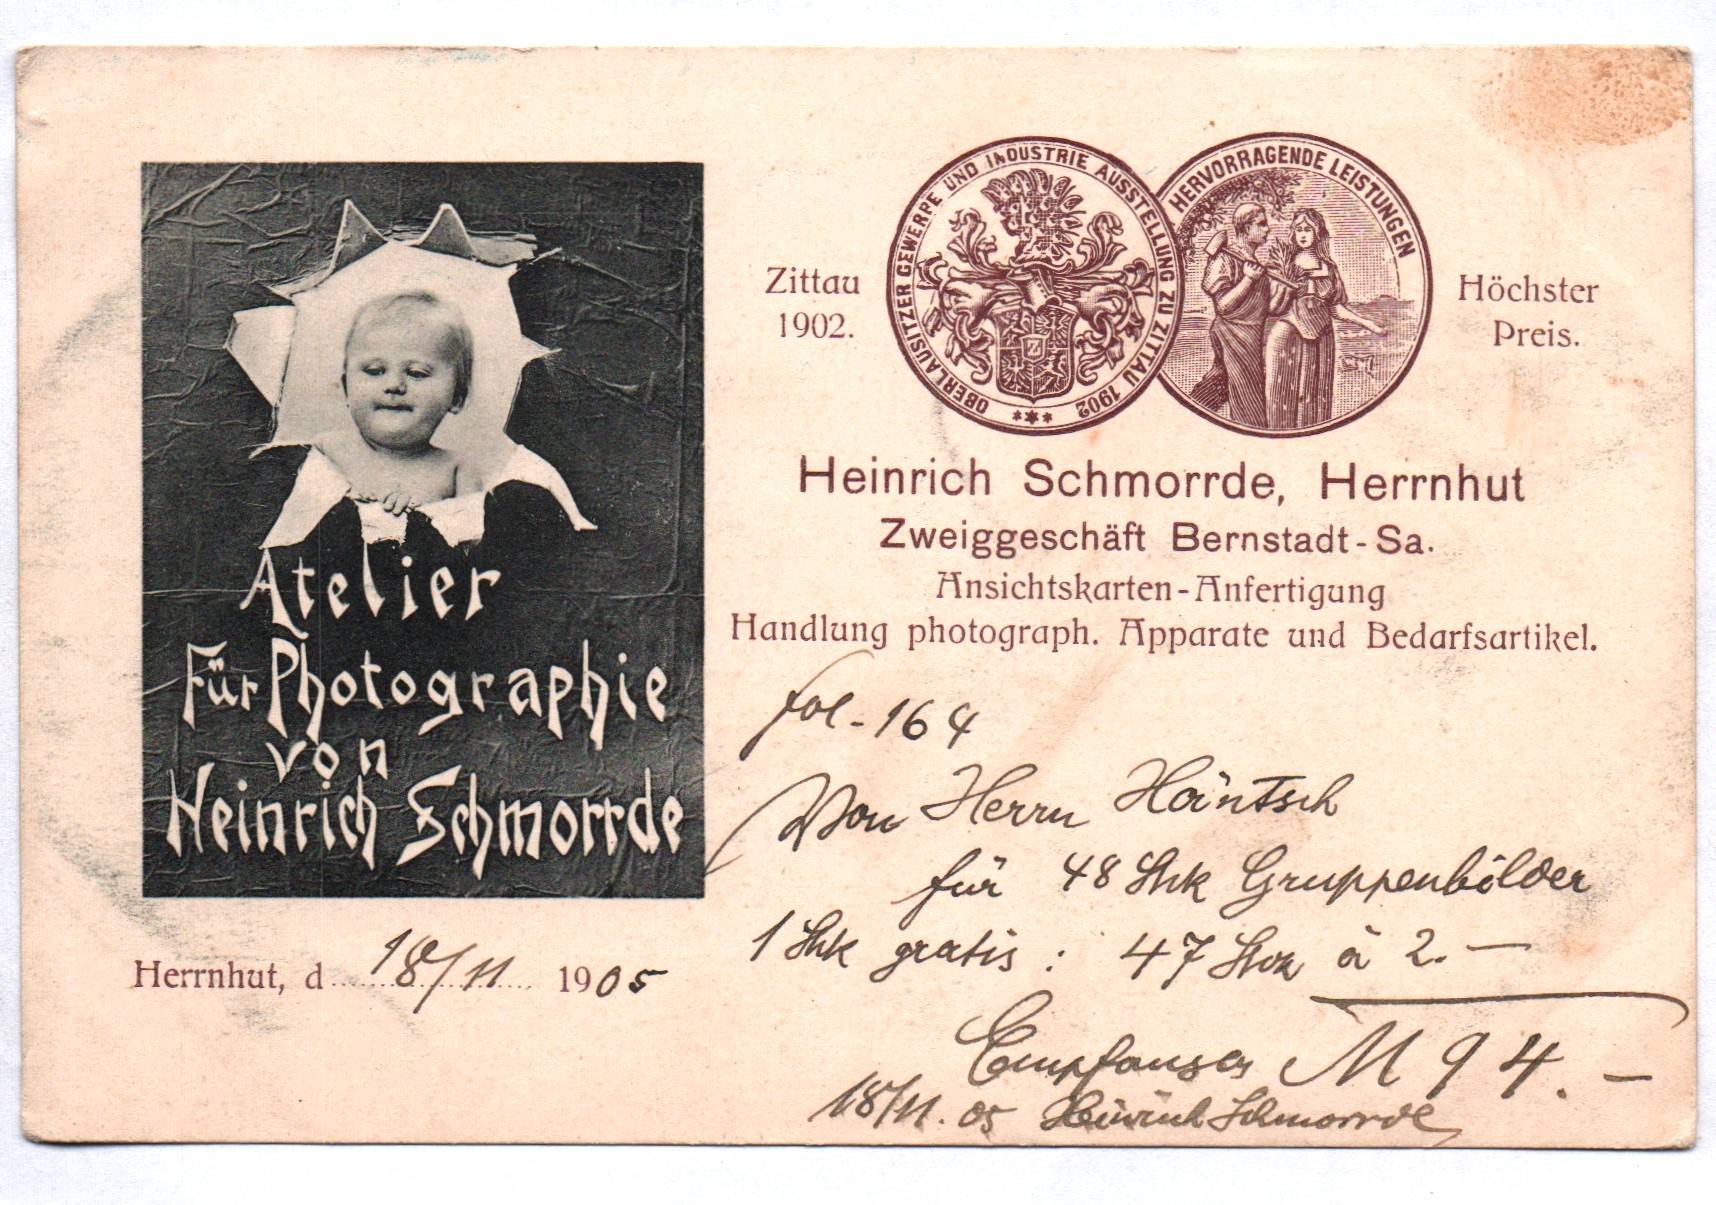 Atelier
Für Photographie
von
Heinrich Schmorrde
Herrnhut, d 18/11 1905
Zittau
1902.
OBERLAUSITZER GEWERBE UND INDUSTRIE AUSSTELLUNG ZU ZITTAU 1902
HERVORRAGENDE LEISTUNGEN
Höchster
Preis.
Heinrich Schmorrde, Herrnhut
Zweiggeschäft Bernstadt-Sa.
Ansichtskarten-Anfertigung
Handlung photograph. Apparate und Bedarfsartikel.
fol-164
Von Herrn Häntsch
für 48 Stck Gruppenbilder
1 Stck gratis: 47 Stck à 2.—
Empfangen M 94.—
18/11.05 Heinrich Schmorrde